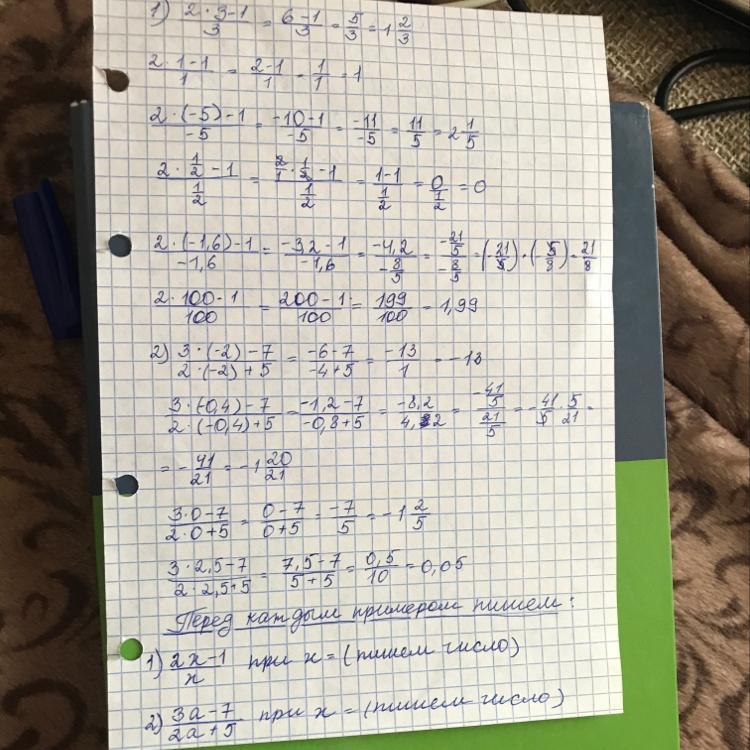 1) (2·3-1)/3 = (6-1)/3 = 5/3 = 1 2/3
(2·1-1)/1 = (2-1)/1 = 1/1 = 1
(2·(-5)-1)/-5 = (-10-1)/-5 = -11/-5 = 11/5 = 2 1/5
(2·1/2-1)/(1/2) = (2/1·1/2-1)/(1/2) = (1-1)/(1/2) = 0/(1/2) = 0
(2·(-1,6)-1)/-1,6 = (-3,2-1)/-1,6 = -4,2/(-8/5) = (-21/5)/(-8/5) = (-21/5)·(-5/8) = 21/8
(2·100-1)/100 = (200-1)/100 = 199/100 = 1,99
2) (3·(-2)-7)/(2·(-2)+5) = (-6-7)/(-4+5) = -13/1 = -13
(3·(-0,4)-7)/(2·(-0,4)+5) = (-1,2-7)/(-0,8+5) = -8,2/4,2 = (-41/5)/(21/5) = -41/5·5/21 =
= -41/21 = -1 20/21
(3·0-7)/(2·0+5) = (0-7)/(0+5) = -7/5 = -1 2/5
(3·2,5-7)/(2·2,5+5) = (7,5-7)/(5+5) = 0,5/10 = 0,05
Перед каждым примером пишем:
1) (2x-1)/x при x = (пишем число)
2) (3a-7)/(2a+5) при x = (пишем число)